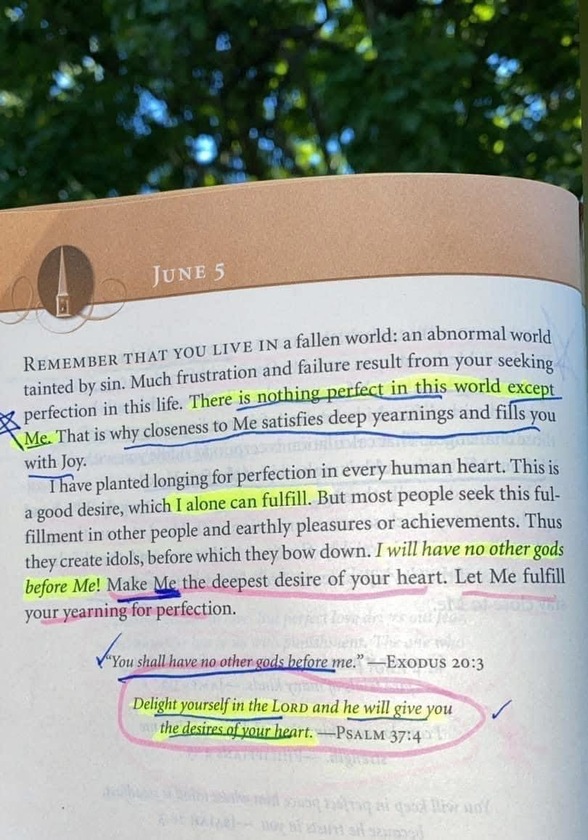 JUNE 5
REMEMBER THAT YOU LIVE IN a fallen world: an abnormal world
tainted by sin. Much frustration and failure result from your seeking
perfection in this life. There is nothing perfect in this world except
Me. That is why closeness to Me satisfies deep yearnings and fills you
with Joy.
I have planted longing for perfection in every human heart. This is
a good desire, which I alone can fulfill. But most people seek this ful-
fillment in other people and earthly pleasures or achievements. Thus
they create idols, before which they bow down. I will have no other gods
before Me! Make Me the deepest desire of your heart. Let Me fulfill
your yearning for perfection.
"You shall have no other gods before me." —EXODUS 20:3
Delight yourself in the LORD and he will give you
the desires of your heart. —PSALM 37:4